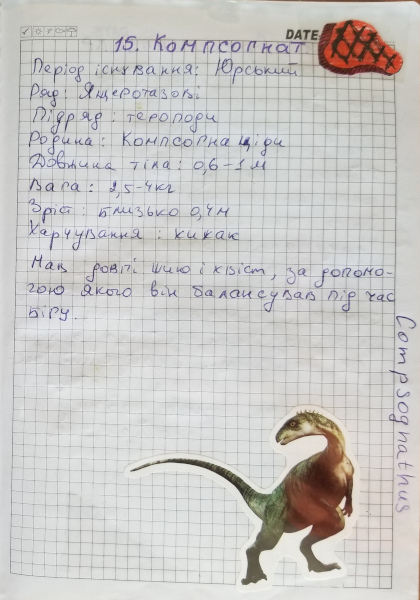 DATE
15. Компсогнат
Період існування: Юрський
Ряд: Ящеротазові
Підряд: тероподи
Родина: Компсогнациди
Довжина тіла: 0,6-1 м
Вага: 2,5-4кг
Зріст: близько 0,4м
Харчування: хижак
Мав довгі шию і хвіст, за допомо-
гою якого він балансував під час
бігу.
Compsognathus